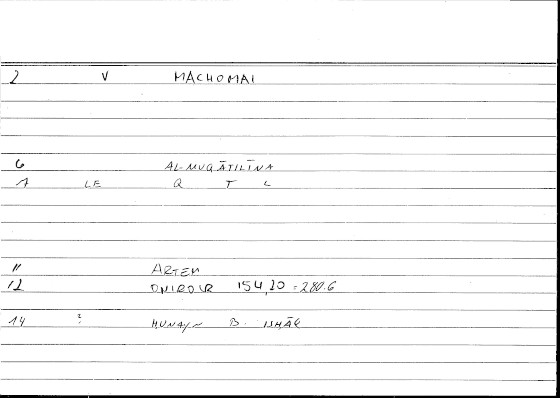 2 V MACHOMAI
6 AL-MUQĀTILĪNA
1 LE Q T L
11 ARTEM
12 ONIROCR 154,20 = 280.6
14 ? HUNAYN B. ISHĀQ